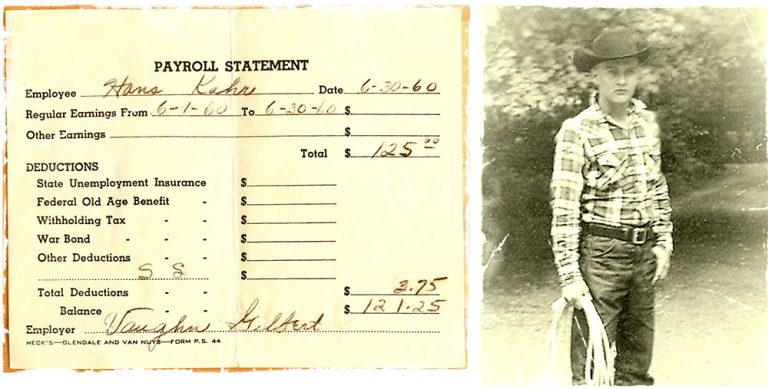 PAYROLL STATEMENT
Employee Hans Kahr Date 6-30-60
Regular Earnings From 6-1-60 To 6-30-60 $
Other Earnings $
Total $ 125.00
DEDUCTIONS
State Unemployment Insurance $
Federal Old Age Benefit - $
Withholding Tax - - $
War Bond - - - $
Other Deductions - - $
S S $
Total Deductions - - $ 3.75
Balance - - $ 121.25
Employer Vaughn Gilbert
HECK'S—GLENDALE AND VAN NUYS—FORM P.S. 44